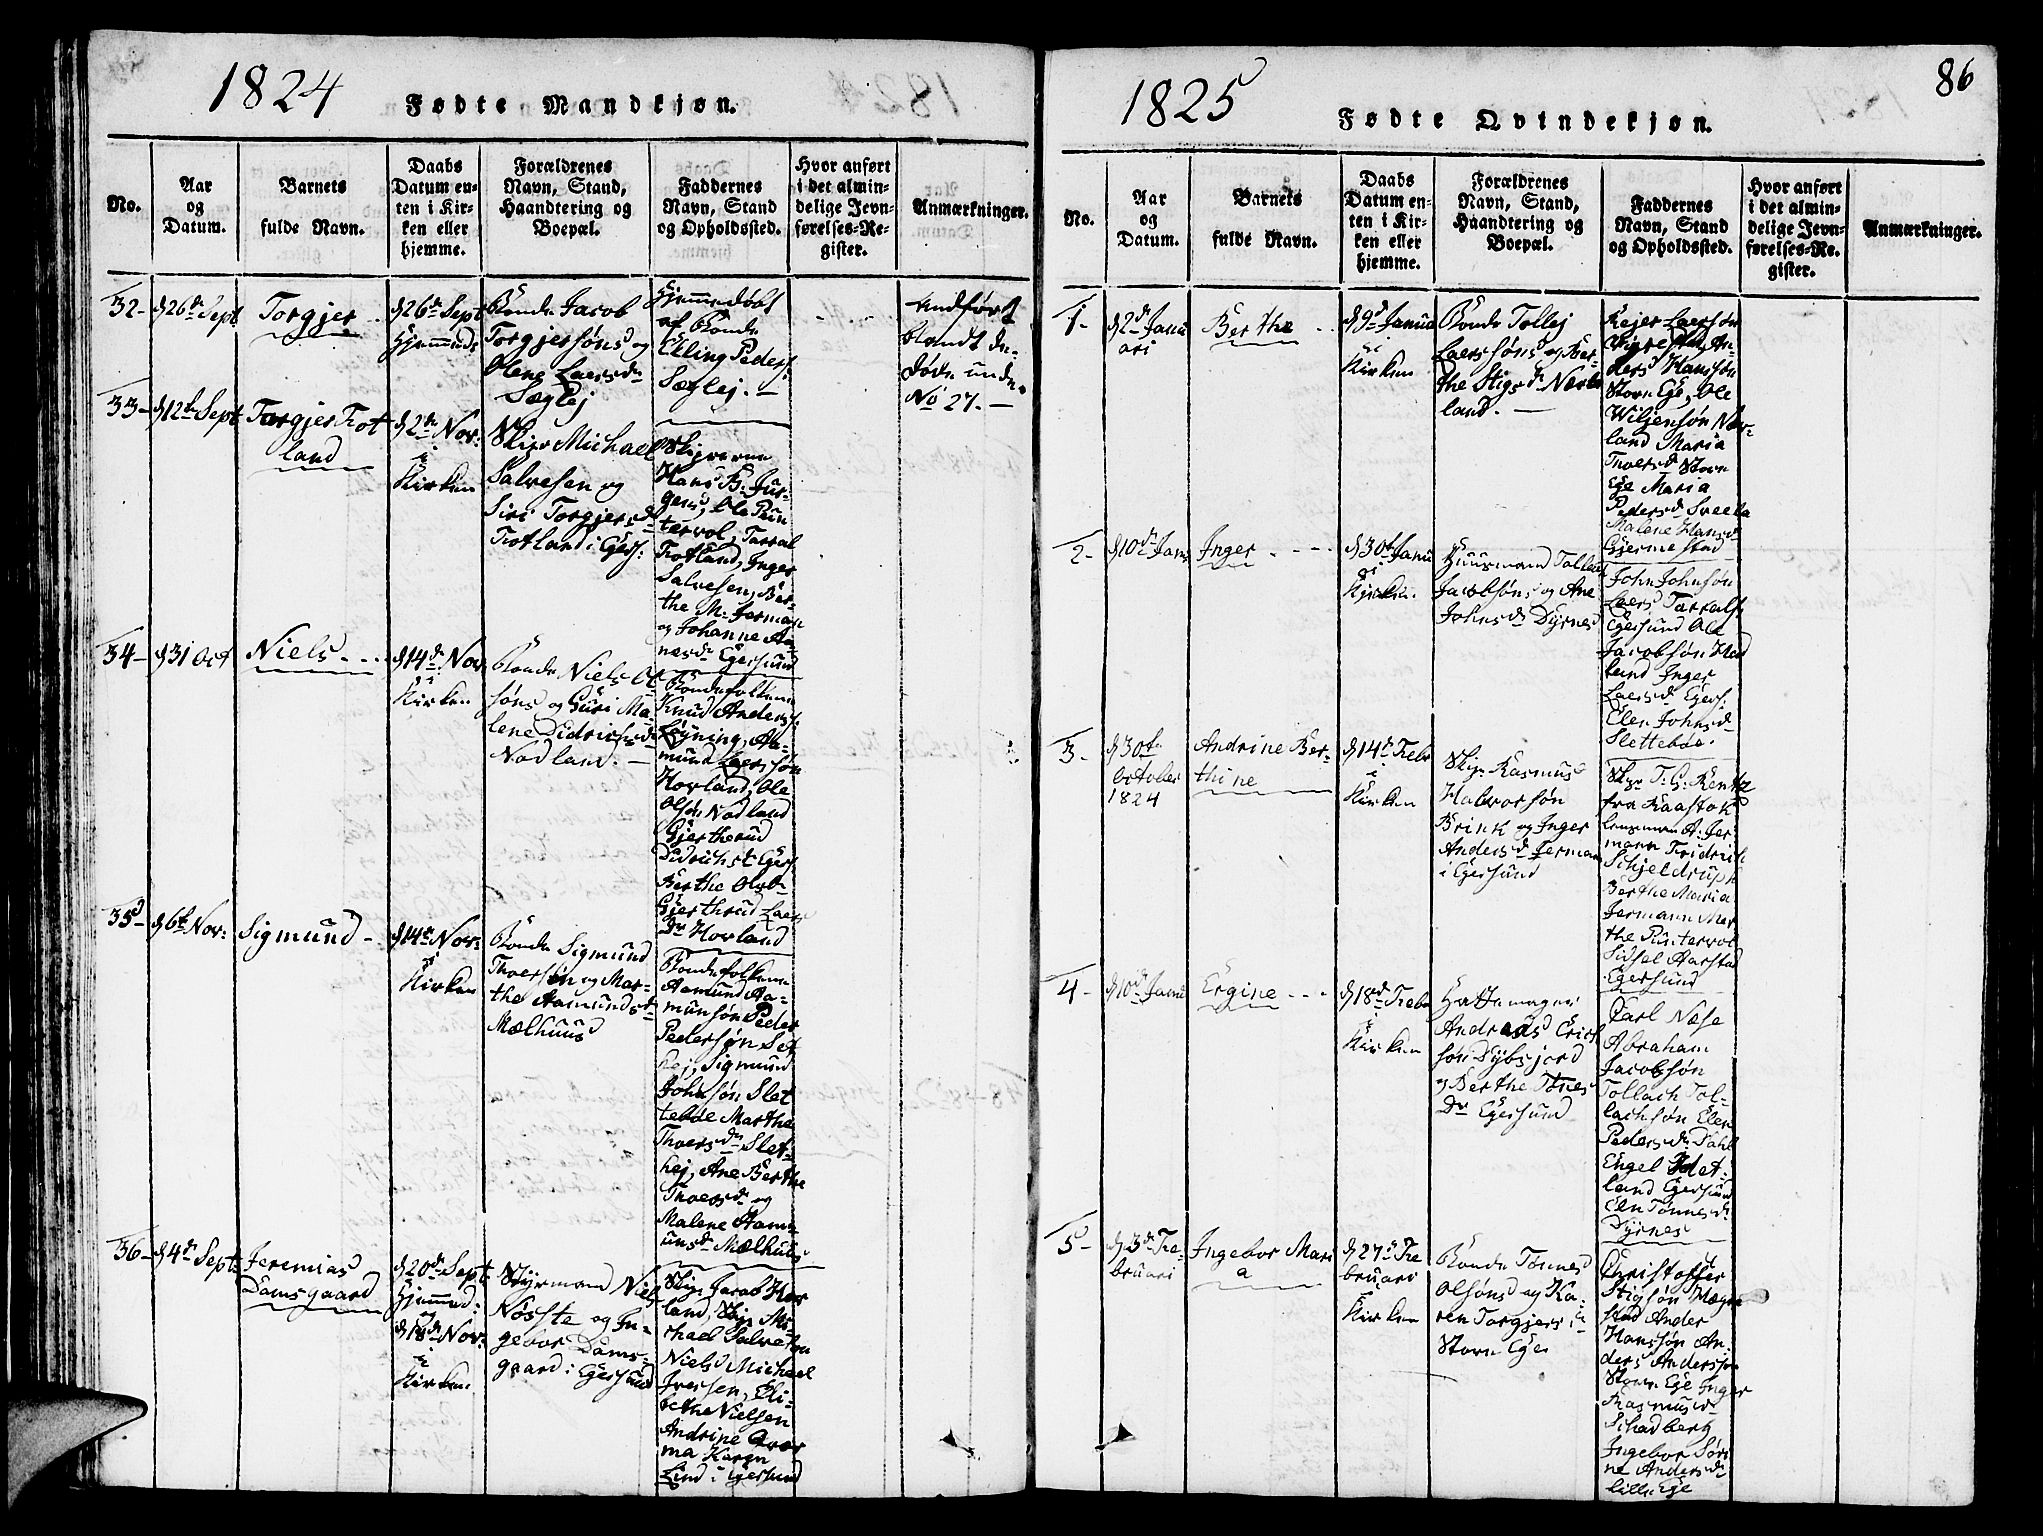 1824
Fødte Mandkjøn.
No.
Aar
og
Datum.
Barnets
fulde Navn.
Daabs
Datum en-
ten i Kir-
ken eller
hjemme.
Forældrenes
Navn, Stand,
Haandtering og
Boepæl.
Faddernes
Navn, Stand
og Opholdssted.
Hvor anført
i det almin-
delige Jevn-
førelses-Re-
gister.
Anmærkninger.
32-
d 26de Sept
Torgjer
d 26de Sept
Hjemmed:
Bonde Jacob
Torgjersøns og
Olene Laersdr
Sæglej
Hjemmedøbt
af Bonde
Elling Peders:
Sæglej. -
Andført
blandt de
døde under
No 27. -
33-
d 12te Sept
Torgjer Trot
land
d 2de Nov:
i
Kirken
Skipr Michael
Salvesen og
Siri Torgjersdr
Trotland i Egers:
Skiprerne
Hans B: Jür-
gens, Ole Pün
tervol, Tarral
Trotland, Inger
Salvesen, Ber-
the M. Jerman
og Johanne Aa-
nesdr Egersund
34-
d 31 Oct
Niels
d 14de Nov
i
Kirken
Bonde Niels Ol
søns og Güri Ma-
lene Didrichsdr
Nodland. -
Bondefolkene
Knud Anders:
Løyning, Aa-
mund Laerssøn
Hovland, Ole
Olsøn Nodland
Gjertherüd
Didrichst Egers
Berthe Olsdr
Gjerthrüd Laers
Dr Hovland
35
d 6te Nov:
Sigmund
d 14de Nov:
i
Kirken
Bonde Sigmund
Thoersen og Mar-
the Aamundsdr
Mælhuus
Bondefolkene
Aamund Aa-
munsøn Peder
Pedersøn Slet
hej, Sigmund
Johnsøn Slet
teboe Marthe
Thoersdr Slet-
hej, Ane Berthe
Thoersdr og
Malene Aamu
unsdr Mælhuus
36-
d 4de Sept
Jeremias
Damsgaard
d 20de Sept
Hjemmed:
og
d 18de Nov:
i
Kirken
Styrmand Niels
Nøsste og In-
gebor Dams-
gaard i Egersund
Skipr Jacob Hov
land, Skipr Mi-
chael Salvesen
Niels Michael
Iversen, Eli-
bethe Nielsen
Andrine Qvær
ma Karen
Lind i Egersund
1825
Fødte Qvindekjøn.
86
No.
Aar
og
Datum.
Barnets
fulde Navn.
Daabs
Datum en-
ten i Kir-
ken eller
hjemme.
Forældrenes
Navn, Stand,
Haandtering og
Boepæl.
Faddernes
Navn, Stand
og Opholdssted.
Hvor anført
i det almin-
delige Jevn-
førelses-Re-
gister.
Anmærkninger.
1-
d 2de Janu
ari
Berthe
d 9de Janua
i
Kirken
Bonde Tollej
Laerssøns og Ber-
the Stigsdr Nærb
land. -
Rejer Laersøn
Vigrestad, An-
ders Hanssøn
Store Ege, Ole
Wiljensøn Nær-
land Maria
Thoersdr Store
Ege Maria
Pedersdr Sveela
Malene Hansdr
Gjermestad
2-
d 10de Janr
Inger
d 30te Janu
i
Kirken.
Huusmand Tollev
Jacobsøns og Ane
Johnsdr Dyrnes
John Johnsøn
Laers Tarrals:
Egersund Ole
Jacobsøn Had
land Inger
Laersdr Egers:
Elen Johnsdr
Sletteboe.
3-
d 30te
October
1824
Andrine Ber-
thine
d 14de Febr
i
Kirken
Skipr Rasmus
Halvorsøn
Brink og Inger
Andersdr Jerman
i Egersund
Skpr T. G: Rentz
fra Raastok
lensmann A: Jer
mann Fridrich
Schjeldrup
Berthe Maria
Jermann Mar
the Püntervol
Sidsel Aarstad
Egersund
4-
d 10de Janu
Ergine
d 18de Febr
i
Kirken
Hattemager
Andreas Erich
søn Dybsjord
og Berthe Tønes
Dr Egersund
Carl Næse
Abraham
Jacobsøn
Tollach Tol-
lachsøn Elen
Pedersdr Dahl
Engel Idet-
land Egersund
Elen Tønnesdr
Dyrnes
5-
d 3de Fe-
bruari
Ingebor Mari
a
d 27de Fe
bruari
i
Kirken
Bonde Tønnes
Olsøns og Ka-
ren Torgjersdr
Store Ege
Christoffer
Stigsøn Mægre
stad Ander
Hanssøn An-
ders Anderssøn
Store Ege Inger
Rasmusdr
Schadberg
Ingebor Søri
ne Andersdr
Lille Ege